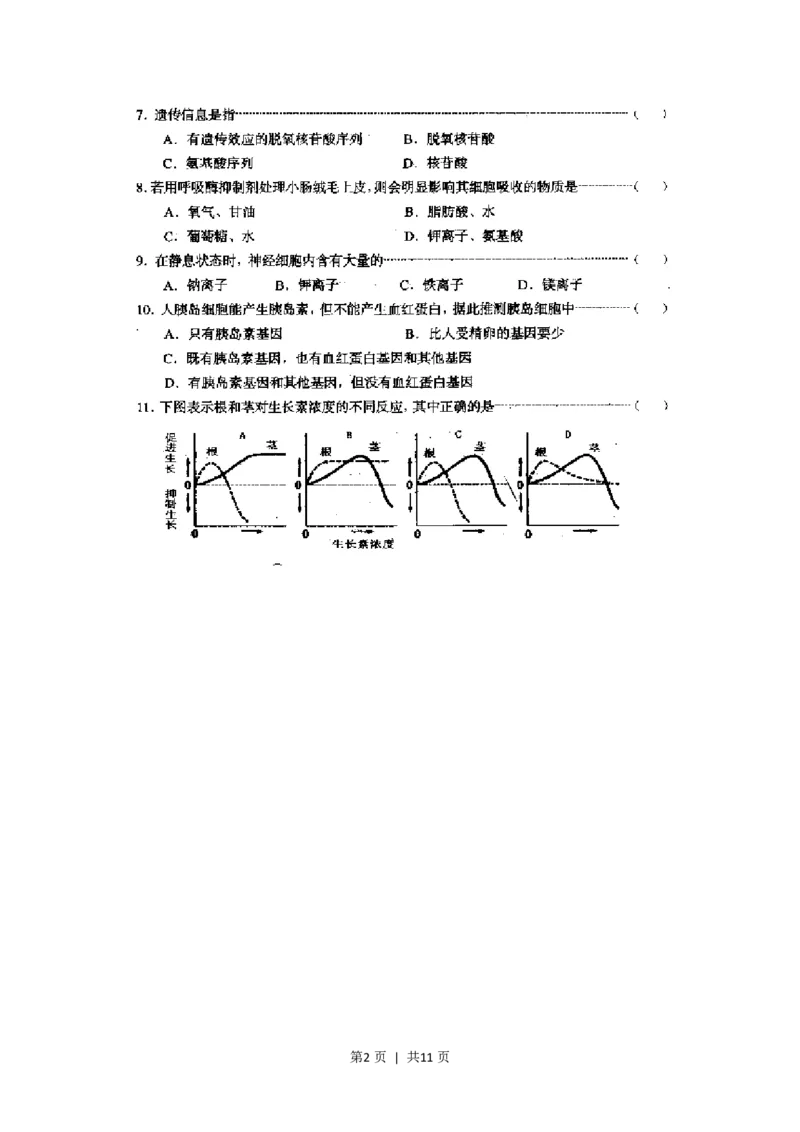 7. 遗传信息是指……( )
A. 有遗传效应的脱氧核苷酸序列 B. 脱氧核苷酸
C. 氨基酸序列 D. 核苷酸
8. 若用呼吸酶抑制剂处理小肠绒毛上皮,则会明显影响其细胞吸收的物质是……( )
A. 氧气、甘油 B. 脂肪酸、水
C. 葡萄糖、水 D. 钾离子、氨基酸
9. 在静息状态时,神经细胞内含有大量的……( )
A. 钠离子 B. 钾离子 C. 铁离子 D. 镁离子
10. 人胰岛细胞能产生胰岛素,但不能产生血红蛋白,据此推测胰岛细胞中……( )
A. 只有胰岛素基因 B. 比人受精卵的基因要少
C. 既有胰岛素基因,也有血红蛋白基因和其他基因
D. 有胰岛素基因和其他基因,但没有血红蛋白基因
11. 下图表示根和茎对生长素浓度的不同反应,其中正确的是……( )
促进生长 A 根 茎 B 根 茎 C 根 茎 D 根 茎
0 0 0 0
抑制生长
0 0 0 0
生长素浓度
第2 页 | 共11 页